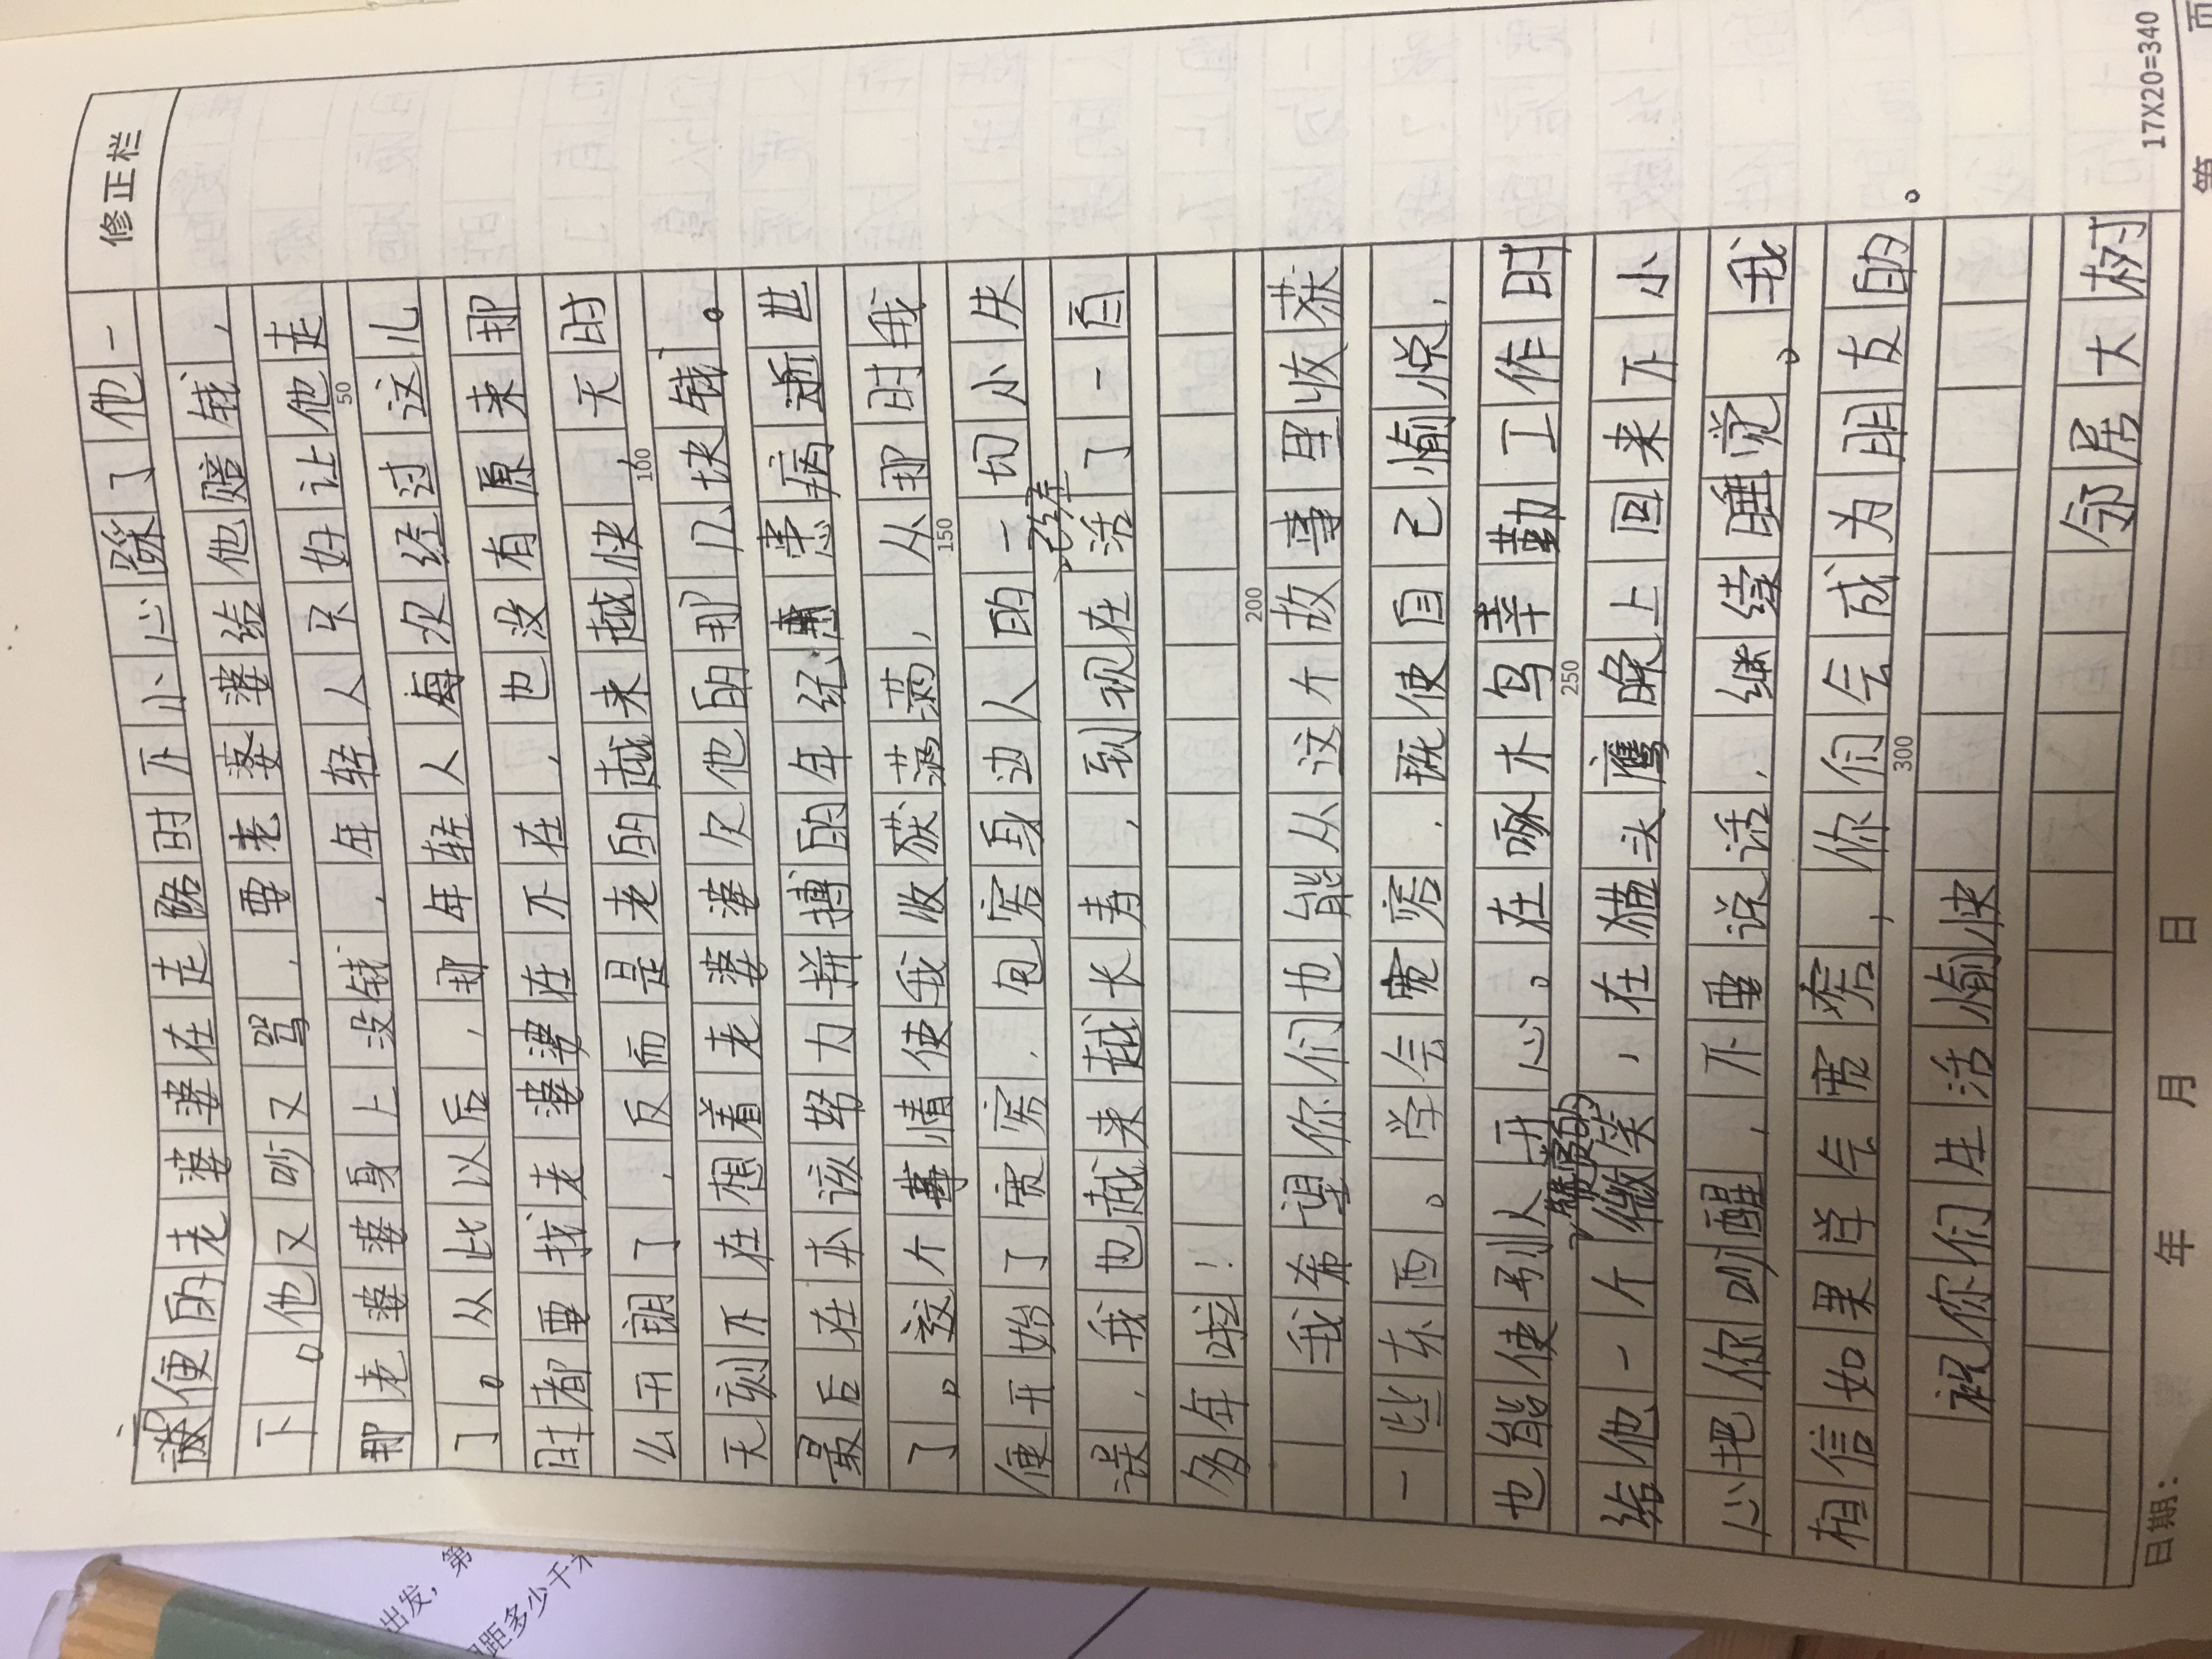 修正栏
便的老婆婆在走路时不小心踩了他一
下。他又吵又骂,要老婆婆给他赔钱,
那老婆婆身上没钱,年轻人只好让他走
了。从此以后,那年轻人每次经过这儿
时都要找老婆婆在不在,也没有原来那
么开朗了,反而是老的越来越快,无时
无刻不在想着老婆婆欠他的那几块钱。
最后在本该努力拼搏的年纪患病逝世
了。这个事情使我收获满满,从那时我
便开始了宽容,包容身边人的一切小失
误,我也越来越长寿,到现在活了一百
多年啦!
我希望你们也能从这个故事里收获
一些东西。学会宽容,既使自己愉悦,
也能使别人开心。在啄木鸟辛勤工作时
给他一个赞赏的微笑,在猫头鹰晚上回来不小
心把你叫醒,不要说话,继续睡觉。我
相信如果学会宽容,你们会成为朋友的。
祝你们生活愉快
邻居大树
50
100
150
200
250
300
17X20=340
日期: 年 月 日 第 页
出发,第
相距多少千米